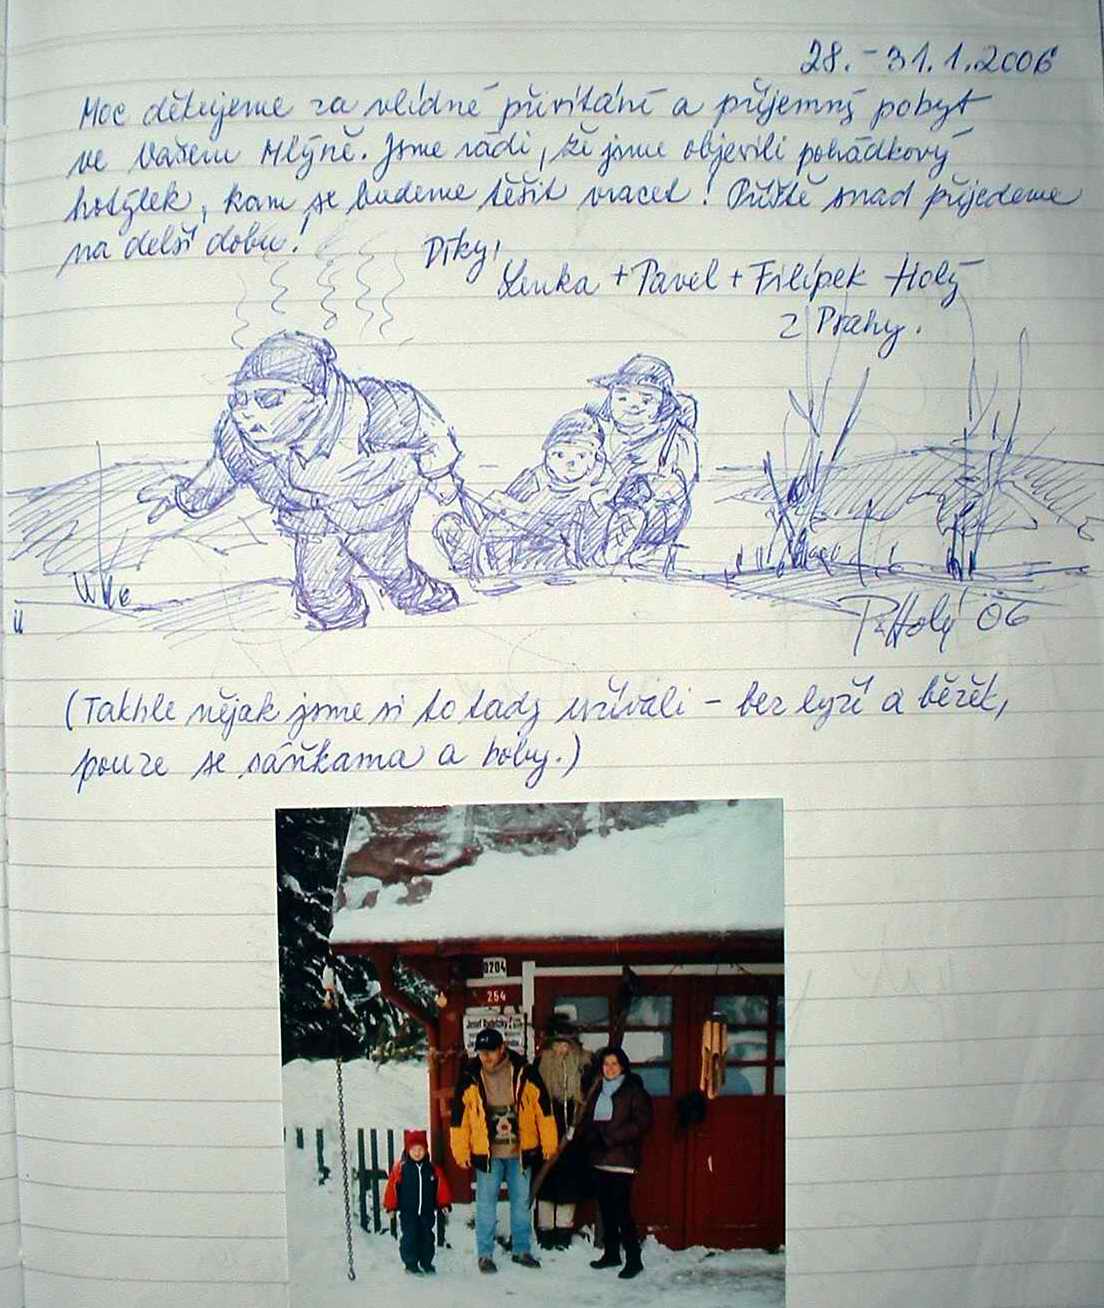 28. - 31. 1. 2006
Moc děkujeme za vlídné přivítání a příjemný pobyt
ve Vašem Mlýně. Jsme rádi, že jsme objevili pohádkový
hotýlek, kam se budeme těšit vracet! Příště snad přijedeme
na delší dobu!
Díky!
Lenka + Pavel + Filípek Holý
z Prahy.
P. Holý 06
(Takhle nějak jsme si to tady užívali - bez lyží a běžek,
pouze se sáňkama a boby.)
0204
254
Josef